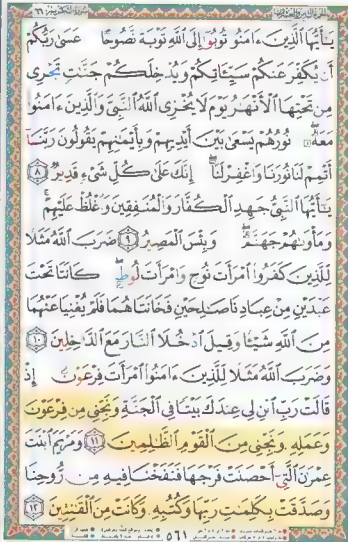 يَٰٓأَيُّهَا ٱلَّذِينَ ءَامَنُواْ تُوبُوٓاْ إِلَى ٱللَّهِ تَوْبَةً نَّصُوحًا عَسَىٰ رَبُّكُمْ
أَن يُكَفِّرَ عَنكُمْ سَيِّـَٔاتِكُمْ وَيُدْخِلَكُمْ جَنَّٰتٍ تَجْرِى
مِن تَحْتِهَا ٱلْأَنْهَٰرُ يَوْمَ لَا يُخْزِى ٱللَّهُ ٱلنَّبِىَّ وَٱلَّذِينَ ءَامَنُواْ
مَعَهُۥ نُورُهُمْ يَسْعَىٰ بَيْنَ أَيْدِيهِمْ وَبِأَيْمَٰنِهِمْ يَقُولُونَ رَبَّنَآ
أَتْمِمْ لَنَا نُورَنَا وَٱغْفِرْ لَنَآ إِنَّكَ عَلَىٰ كُلِّ شَىْءٍ قَدِيرٌ ٨
يَٰٓأَيُّهَا ٱلنَّبِىُّ جَٰهِدِ ٱلْكُفَّارَ وَٱلْمُنَٰفِقِينَ وَٱغْلُظْ عَلَيْهِمْ
وَمَأْوَىٰهُمْ جَهَنَّمُ وَبِئْسَ ٱلْمَصِيرُ ٩ ضَرَبَ ٱللَّهُ مَثَلًا
لِّلَّذِينَ كَفَرُواْ ٱمْرَأَتَ نُوحٍ وَٱمْرَأَتَ لُوطٍ كَانَتَا تَحْتَ
عَبْدَيْنِ مِنْ عِبَادِنَا صَٰلِحَيْنِ فَخَانَتَاهُمَا فَلَمْ يُغْنِيَا عَنْهُمَا
مِنَ ٱللَّهِ شَيْـًٔا وَقِيلَ ٱدْخُلَا ٱلنَّارَ مَعَ ٱلدَّٰخِلِينَ ١٠
وَضَرَبَ ٱللَّهُ مَثَلًا لِّلَّذِينَ ءَامَنُواْ ٱمْرَأَتَ فِرْعَوْنَ إِذْ
قَالَتْ رَبِّ ٱبْنِ لِى عِندَكَ بَيْتًا فِى ٱلْجَنَّةِ وَنَجِّنِى مِن فِرْعَوْنَ
وَعَمَلِهِۦ وَنَجِّنِى مِنَ ٱلْقَوْمِ ٱلظَّٰلِمِينَ ١١ وَمَرْيَمَ ٱبْنَتَ
عِمْرَٰنَ ٱلَّتِىٓ أَحْصَنَتْ فَرْجَهَا فَنَفَخْنَا فِيهِ مِن رُّوحِنَا
وَصَدَّقَتْ بِكَلِمَٰتِ رَبِّهَا وَكُتُبِهِۦ وَكَانَتْ مِنَ ٱلْقَٰنِتِينَ ١٢
٥٦١